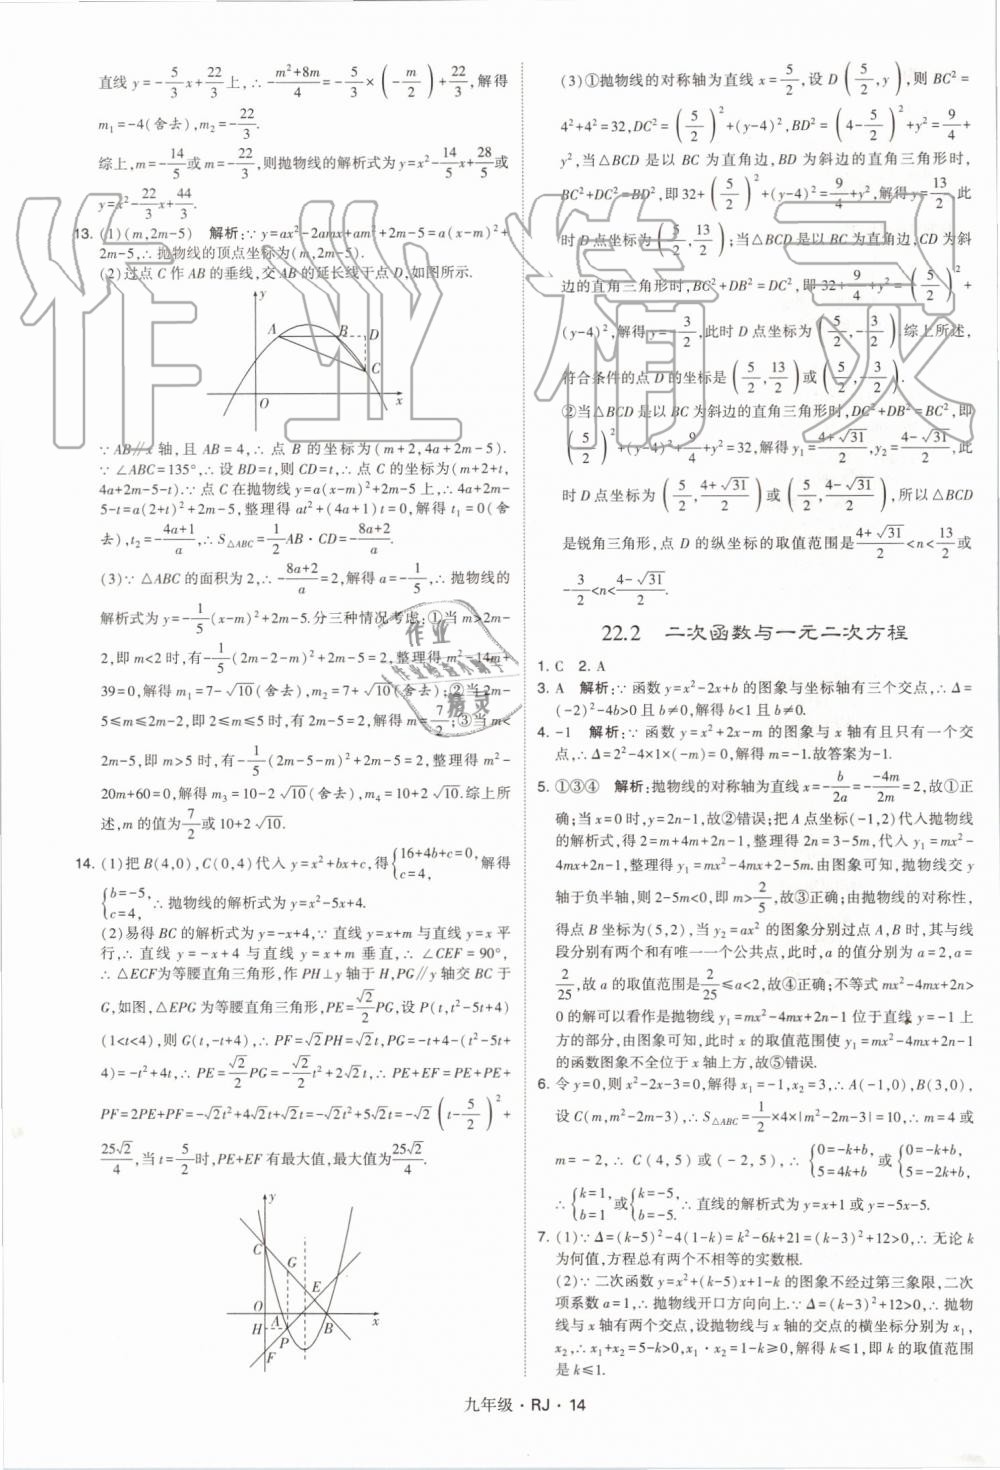 直线 y=-5/3x+22/3上,∴-(m²+8m)/4=-5/3×(-m/2)+22/3,解得
m₁=-4(舍去),m₂=-22/3.
综上,m=-14/5或m=-22/3,则抛物线的解析式为y=x²-14/5x+28/5或
y=x²-22/3x+44/3.
13. (1)(m,2m-5) 解析:∵y=ax²-2amx+am²+2m-5=a(x-m)²+
2m-5,∴抛物线的顶点坐标为(m,2m-5).
(2)过点C作AB的垂线,交AB的延长线于点D,如图所示.
y
A B D
C
O x
∵AB∥x轴,且AB=4,∴点B的坐标为(m+2,4a+2m-5).
∵∠ABC=135°,∴设BD=t,则CD=t,∴点C的坐标为(m+2+t,
4a+2m-5-t).∵点C在抛物线y=a(x-m)²+2m-5上,∴4a+2m-
5-t=a(2+t)²+2m-5,整理得at²+(4a+1)t=0,解得t₁=0(舍
去),t₂=-(4a+1)/a,∴S△ABC=1/2AB·CD=-(8a+2)/a.
(3)∵△ABC的面积为2,∴-(8a+2)/a=2,解得a=-1/5,∴抛物线的
解析式为y=-1/5(x-m)²+2m-5.分三种情况考虑:①当m>2m-
2,即m<2时,有-1/5(2m-2-m)²+2m-5=2,整理得m²-14m+
39=0,解得m₁=7-√10(舍去),m₂=7+√10(舍去);②当2m-
5≤m≤2m-2,即2≤m≤5时,有2m-5=2,解得m=7/2;③当m<
2m-5,即m>5时,有-1/5(2m-5-m)²+2m-5=2,整理得m²-
20m+60=0,解得m₃=10-2√10(舍去),m₄=10+2√10.综上所
述,m的值为7/2或10+2√10.
14. (1)把B(4,0),C(0,4)代入y=x²+bx+c,得{16+4b+c=0, c=4,解得
{b=-5, c=4,∴抛物线的解析式为y=x²-5x+4.
(2)易得BC的解析式为y=-x+4,∵直线y=x+m与直线y=x平
行,∴直线y=-x+4与直线y=x+m垂直,∴∠CEF=90°,
∴△ECF为等腰直角三角形,作PH⊥y轴于H,PG∥y轴交BC于
G,如图,△EPG为等腰直角三角形,PE=√2/2PG,设P(t,t²-5t+4)
(1<t<4),则G(t,-t+4),∴PF=√2PH=√2t,PG=-t+4-(t²-5t+
4)=-t²+4t,∴PE=√2/2PG=-√2/2t²+2√2t,∴PE+EF=PE+PE+
PF=2PE+PF=-√2t²+4√2t+√2t=-√2t²+5√2t=-√2(t-5/2)²+
25√2/4,当t=5/2时,PE+EF有最大值,最大值为25√2/4.
y
C
G
E
O A B x
H P
F
(3)①抛物线的对称轴为直线x=5/2,设D(5/2,y),则BC²=
4²+4²=32,DC²=(5/2)²+(y-4)²,BD²=(4-5/2)²+y²=9/4+
y²,当△BCD是以BC为直角边,BD为斜边的直角三角形时,
BC²+DC²=BD²,即32+(5/2)²+(y-4)²=9/4+y²,解得y=13/2,此
时D点坐标为(5/2,13/2);当△BCD是以BC为直角边,CD为斜
边的直角三角形时,BC²+DB²=DC²,即32+9/4+y²=(5/2)²+
(y-4)²,解得y=-3/2,此时D点坐标为(5/2,-3/2).综上所述,
符合条件的点D的坐标是(5/2,13/2)或(5/2,-3/2).
②当△BCD是以BC为斜边的直角三角形时,DC²+DB²=BC²,即
(5/2)²+(y-4)²+9/4+y²=32,解得y₁=(4+√31)/2,y₂=(4-√31)/2,此
时D点坐标为(5/2,(4+√31)/2)或(5/2,(4-√31)/2),所以△BCD
是锐角三角形,点D的纵坐标的取值范围是(4+√31)/2<n<13/2或
-3/2<n<(4-√31)/2.
22.2 二次函数与一元二次方程
1. C 2. A
3. A 解析:∵函数y=x²-2x+b的图象与坐标轴有三个交点,∴Δ=
(-2)²-4b>0且b≠0,解得b<1且b≠0.
4. -1 解析:∵函数y=x²+2x-m的图象与x轴有且只有一个交
点,∴Δ=2²-4×1×(-m)=0,解得m=-1.故答案为-1.
5. ①③④ 解析:抛物线的对称轴为直线x=-b/2a=-(-4m)/2m=2,故①正
确;当x=0时,y=2n-1,故②错误;把A点坐标(-1,2)代入抛物线
的解析式,得2=m+4m+2n-1,整理得2n=3-5m,代入y₁=mx²-
4mx+2n-1,整理得y₁=mx²-4mx+2-5m.由图象可知,抛物线交y
轴于负半轴,则2-5m<0,即m>2/5,故③正确;由抛物线的对称性,
得点B坐标为(5,2),当y₂=ax²的图象分别过点A,B时,其与线
段分别有两个和有唯一一个公共点,此时,a的值分别为a=2,a=
2/25,故a的取值范围是2/25≤a<2,故④正确;不等式mx²-4mx+2n>
0的解可以看作是抛物线y₁=mx²-4mx+2n-1位于直线y=-1上
方的部分,由图象可知,此时x的取值范围使y₁=mx²-4mx+2n-1
的函数图象不全位于x轴上方,故⑤错误.
6. 令y=0,则x²-2x-3=0,解得x₁=-1,x₂=3,∴A(-1,0),B(3,0),
设C(m,m²-2m-3),∴S△ABC=1/2×4×|m²-2m-3|=10,∴m=4或
m=-2,∴C(4,5)或(-2,5),∴{0=-k+b, 5=4k+b或{0=-k+b, 5=-2k+b,
∴{k=1, b=1或{k=-5, b=-5.∴直线的解析式为y=x+1或y=-5x-5.
7. (1)∵Δ=(k-5)²-4(1-k)=k²-6k+21=(k-3)²+12>0,∴无论k
为何值,方程总有两个不相等的实数根.
(2)∵二次函数y=x²+(k-5)x+1-k的图象不经过第三象限,二次
项系数a=1,∴抛物线开口方向向上.∵Δ=(k-3)²+12>0,∴抛物
线与x轴有两个交点,设抛物线与x轴的交点的横坐标分别为x₁,
x₂,∴x₁+x₂=5-k>0,x₁·x₂=1-k≥0,解得k≤1,即k的取值范围
是k≤1.
九年级·RJ·14
作业精灵
作业
精灵